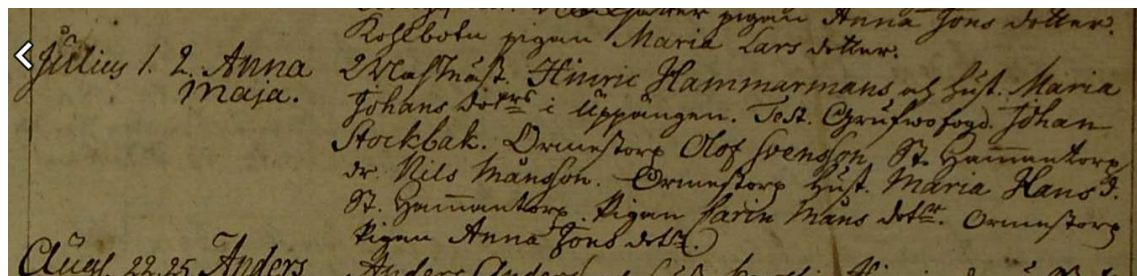 pigan Anna Jons dotter.
Kohlbotn pigan Maria Lars dotter.
Julius 1. 2. Anna Maja.
Hinric Hammarmans och Hust. Maria
Johans dotrs i Uppängen. Test. Grufwofogd. Johan
Stockbak. Ormestorp Olof Svensson, St. Hammantorp
dr. Nils Månsson. Ormestorp Hust. Maria Hans D.
St. Hammantorp. Pigan Carin Måns dottr. Ormestorp
Pigan Anna Jons dottr.
Augl. 22. 25. Anders